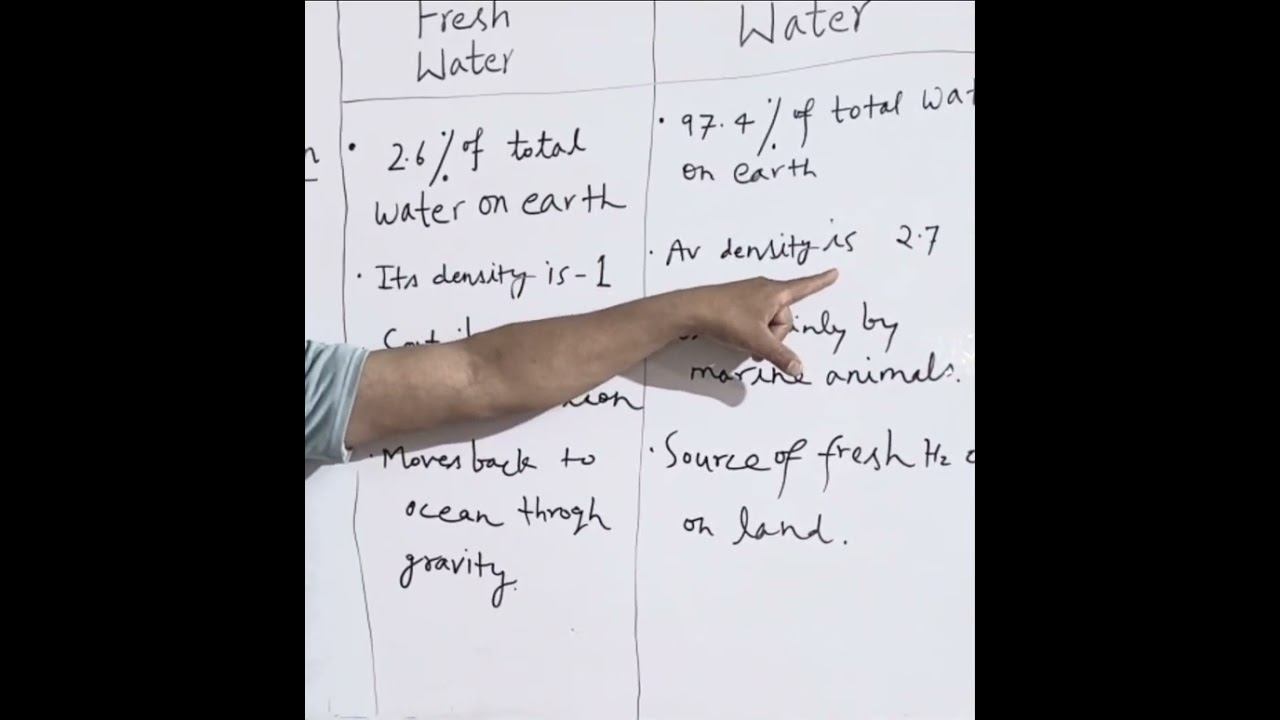 Fresh
Water
2.6% of total
water on earth
Its density is - 1
Moves back to
ocean throgh
gravity.
Water
97.4% of total
on earth
Av density is 2.7
by
marine animals.
Source of fresh H2
on land.